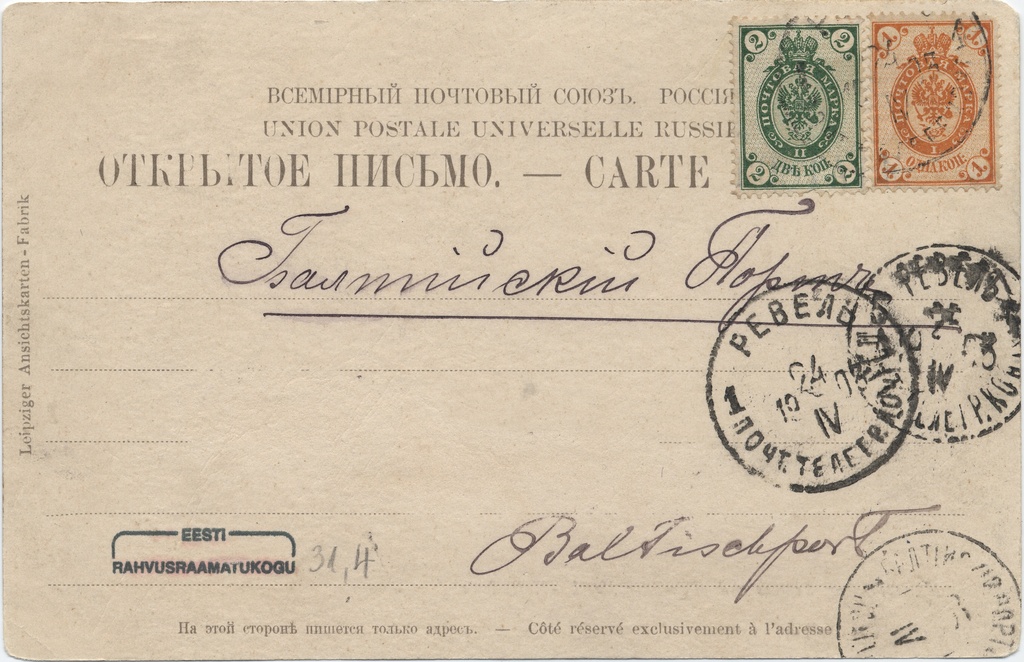 ВСЕМІРНЫЙ ПОЧТОВЫЙ СОЮЗЪ. РОССІЯ
UNION POSTALE UNIVERSELLE RUSSIE
ОТКРЫТОЕ ПИСЬМО. — CARTE
2 2
ПОЧТОВАЯ МАРКА
II
ДВѢ КОП.
2 2
1 1
ПОЧТОВАЯ МАРКА
I
ОДНА КОП.
1 1
Балтійскій Портъ
РЕВЕЛЬ
24
IV
1 ПОЧТ. ТЕЛЕГР. КОНТ.
РЕВЕЛЬ
IV
ТЕЛЕГР. КО
Leipziger Ansichtskarten-Fabrik
Baltischport
IV
EESTI
RAHVUSRAAMATUKOGU
31,4
На этой сторонѣ пишется только адресъ. — Côté réservé exclusivement à l'adresse